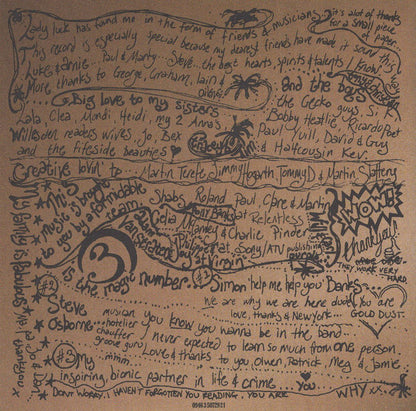 Lady luck has found me in the form of friends & musicians
it's alot of thanks for a small piece of paper
This record is especially special because my dearest friends have made it sound this
Luke & Jamie... Paul & Marty... Steve... the best hearts, spirits & talents I know
More thanks to George, Graham, Iain &
and the boys
Big love to my sisters
the Gecko guys, S, K
Lala, Clea, Mandi, Heidi, my 2 Anna's
Bobby Heatlie, Ricardo Poet
Willesden readers wives, Jo, Bex
Paul Yuill, David & Guy
and the fireside beauties
& Halfcousin Kev
Creative lovin' to... Martin Terefe Jimmy Hogarth, Tommy D & Martin Slattery
This music is brought to you by a formidable team
Shabs, Roland, Paul, Clare & Martin at Relentless
Tony Banks
Celia Manley & Charlie Pinder
at Sony/ATV publishing
at Virgin
WOW!
thankyou
THEY WORK VERY HARD
3 is the magic number
#1 Simon help me help you Banks
we are why we are here dude. You are
love, thanks & New York. GOLD DUST
#2 Steve Osborne
musician you know you wanna be in the band
hotelier chauffeur groove guru
never expected to learn so much from one person
Love & thanks to you Owen, Patrick, Meg & Jamie
#3 my
mmm
inspiring, bionic partner in life & crime... You
WHY xx
My family is Precious
DON'T WORRY, I HAVEN'T FORGOTTEN YOU READING.. YOU ARE
094635022821